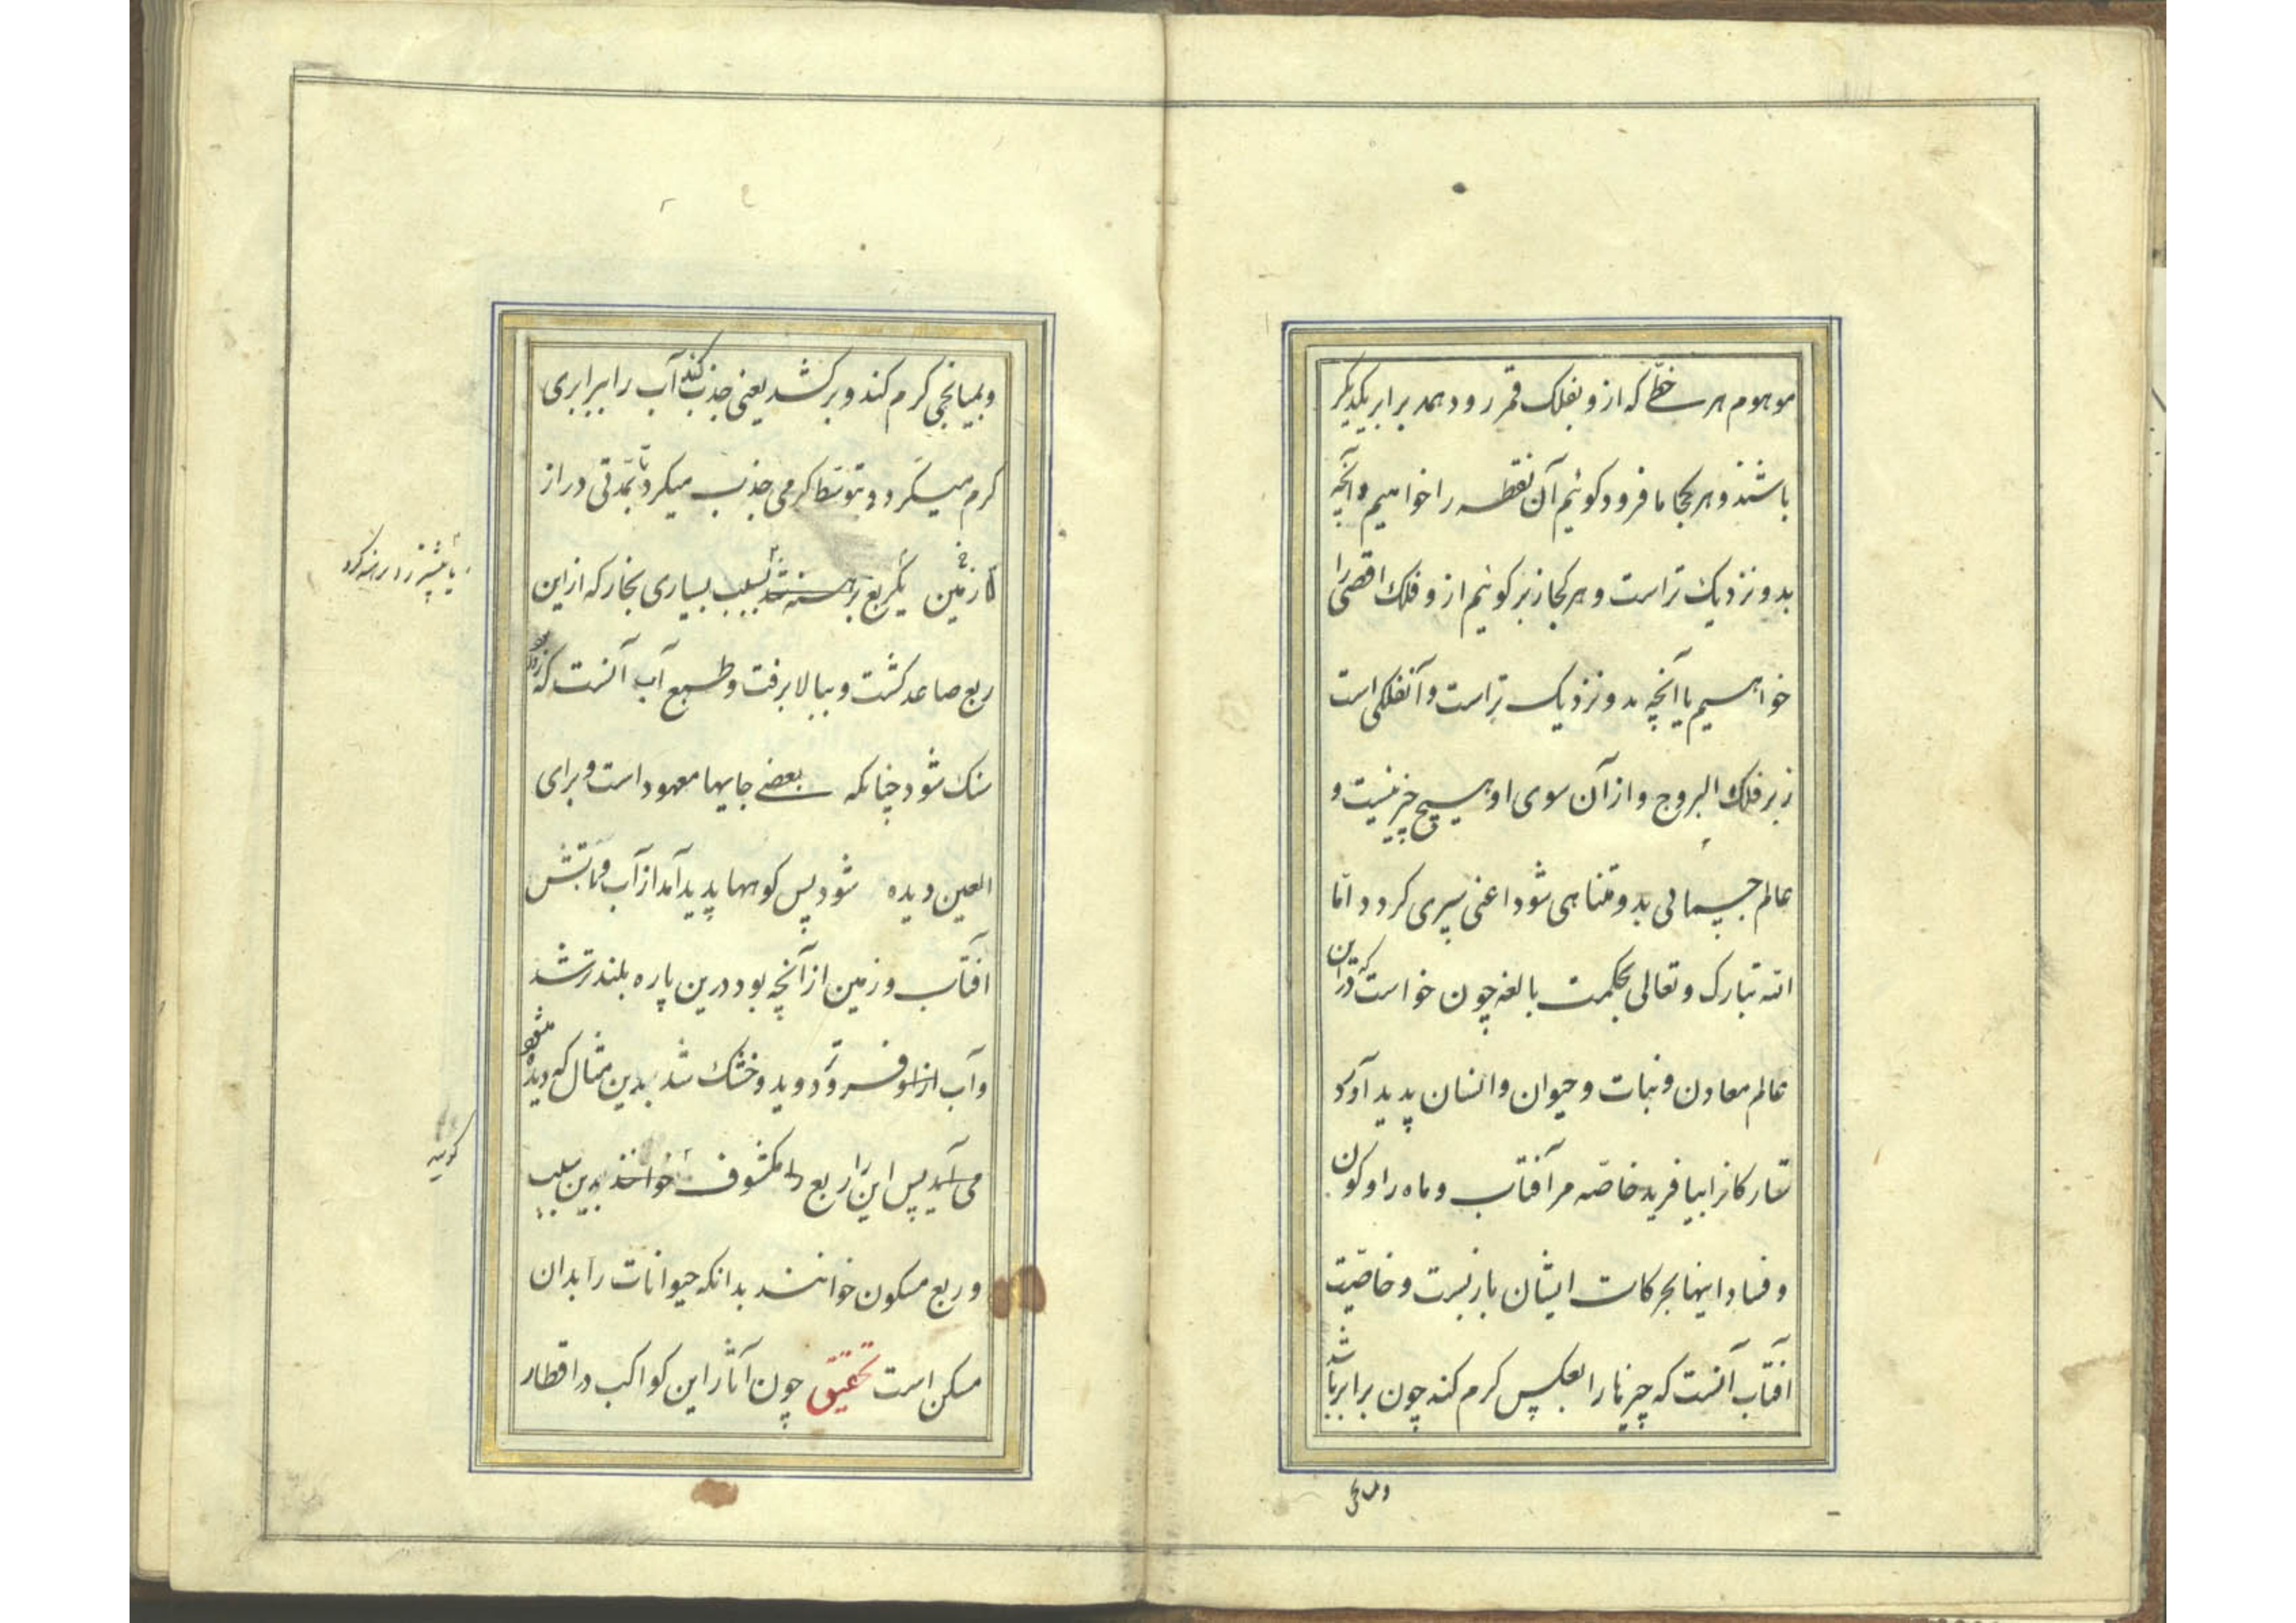 موهوم هر خطّی که ازو بفلک قمر رود همه برابر یکدیگر
باشند و هر کجا ما فرود کوئیم آن نقطه را خواهیم و آنچه
بدو نزدیک تر است و هر کجا زبر کوئیم ازو فلک اقصی را
خواهیم یا آنچه بدو نزدیک تر است و آنفلکی است
زبر فلک البروج و از آن سوی او هیچ چیز نیست و
عالم جسمانی بدو متناهی شود اعنی سپری کردد امّا
الله تبارک و تعالی بحکمت بالغه چون خواست که درین
عالم معادن و نبات و حیوان و انسان پدید آورد
ستارکانرا بیافرید خاصّه مر آفتاب و ماه را و کون
و فساد اینها بحرکات ایشان باز بست و خاصّیت
آفتاب آنست که چیزها را بعکس کرم کند چون برابر باشد
ومیانجی
وبمیانجی کرم کند و برکشد یعنی جذب کند آب را ببرابری
کرم میکرد و بتوسّط کرمی جذب میکرد تا بمدّتی دراز
تا از زمین یکربع برهنه شد بسبب بسیاری بخار که ازین
ربع صاعد کشت و ببالا برفت و طبع آب آنست که
سنک شود چنانکه بعضی جایها معهود است و برای
العین دیده شود پس کوهها پدید آمد از آب و تابش
آفتاب و زمین از آنچه بود درین پاره بلندتر شد
و آب ازو فرود دوید و خشک شد بدین مثال که دیده میشود
می‌آید پس این را ربع مکشوف خوانند بدین سبب
و ربع مسکون خوانند بدانکه حیوانات را بدان
مسکن است تحقیق چون آثار این کواکب در اقطار
کویند